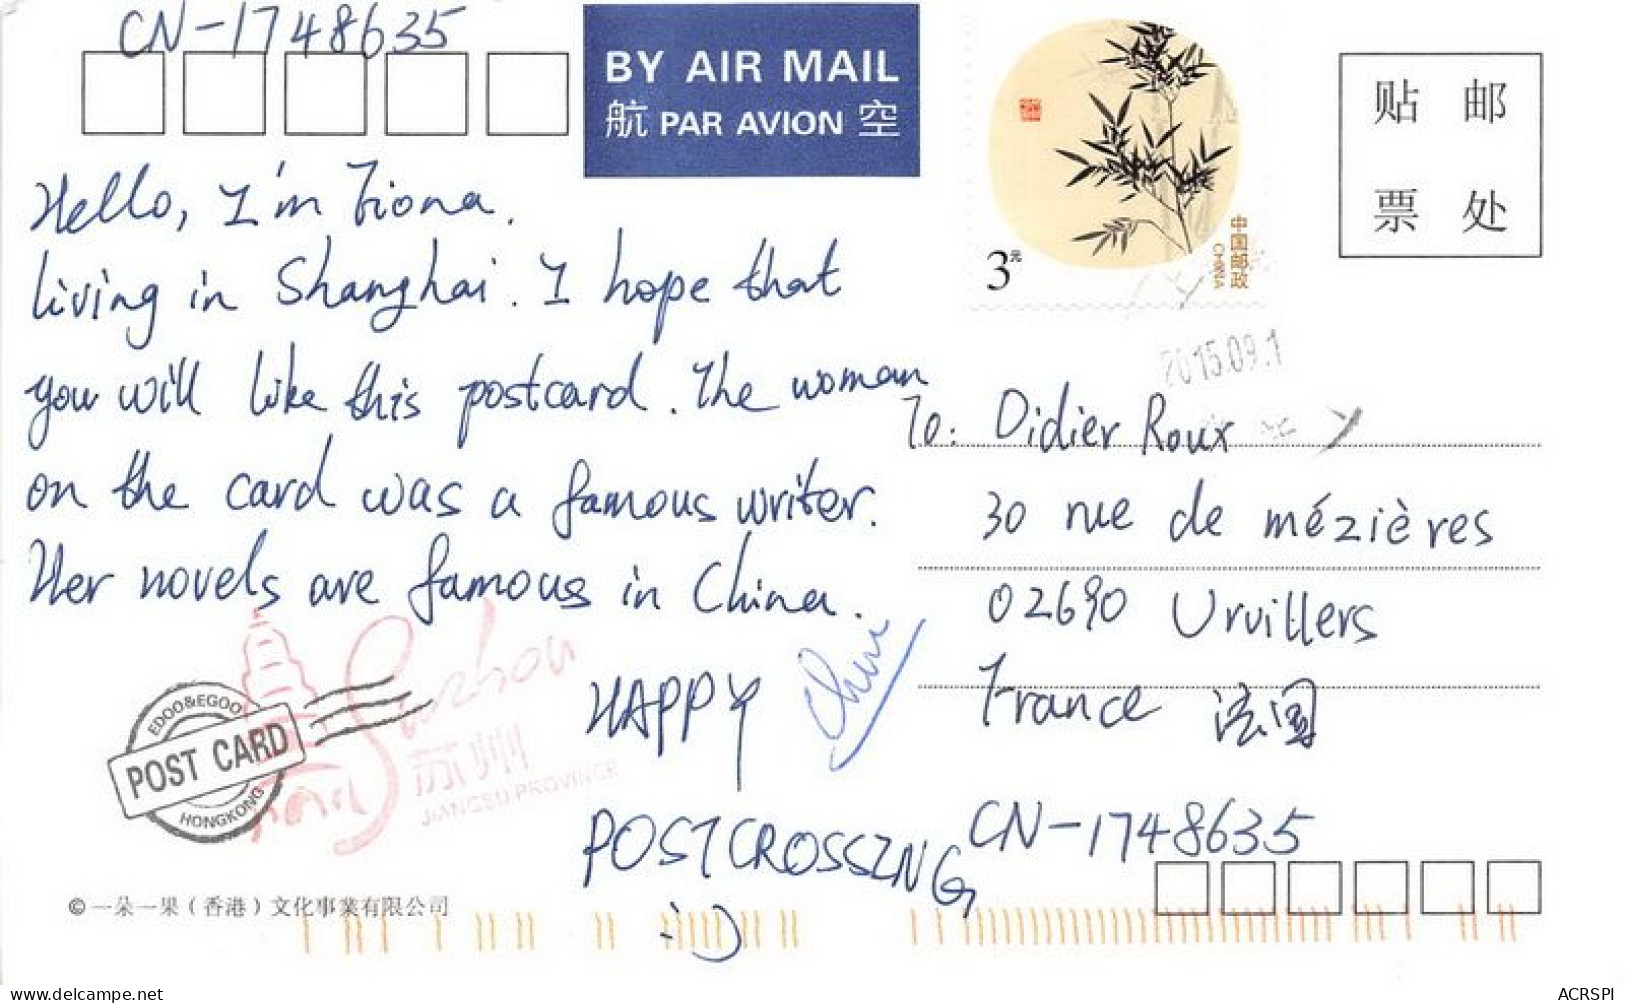 CN-1748635
BY AIR MAIL
航 PAR AVION 空
3元
中国邮政
CHINA
贴 邮
票 处
2015.09.1
Hello, I'm Fiona.
living in Shanghai. I hope that
you will like this postcard. The woman
on the card was a famous writer.
Her novels are famous in China.
HAPPY
POSTCROSSING
:-)
To: Didier Roux
30 rue de mézières
02690 Urvillers
France 法国
CN-1748635
EDOO&EGOO
POST CARD
HONGKONG
Suzhou
苏州
JIANGSU PROVINCE
China
©一朵一果（香港）文化事業有限公司
delcampe.net
ACRSPI